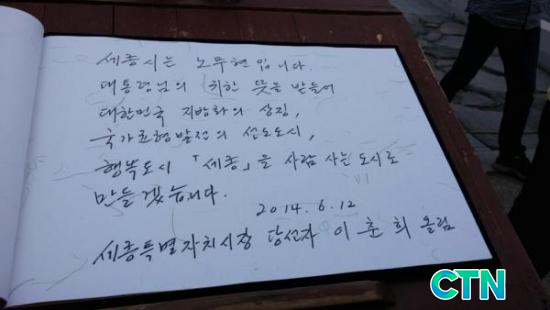 세종시는 노무현입니다.
대통령님의 귀한 뜻을 받들어
대한민국 지방화의 상징,
국가균형발전의 선도도시,
행복도시 「세종」을 사람 사는 도시로
만들겠습니다.
2014. 6. 12
세종특별자치시장 당선자 이 춘 희 올림
CTN